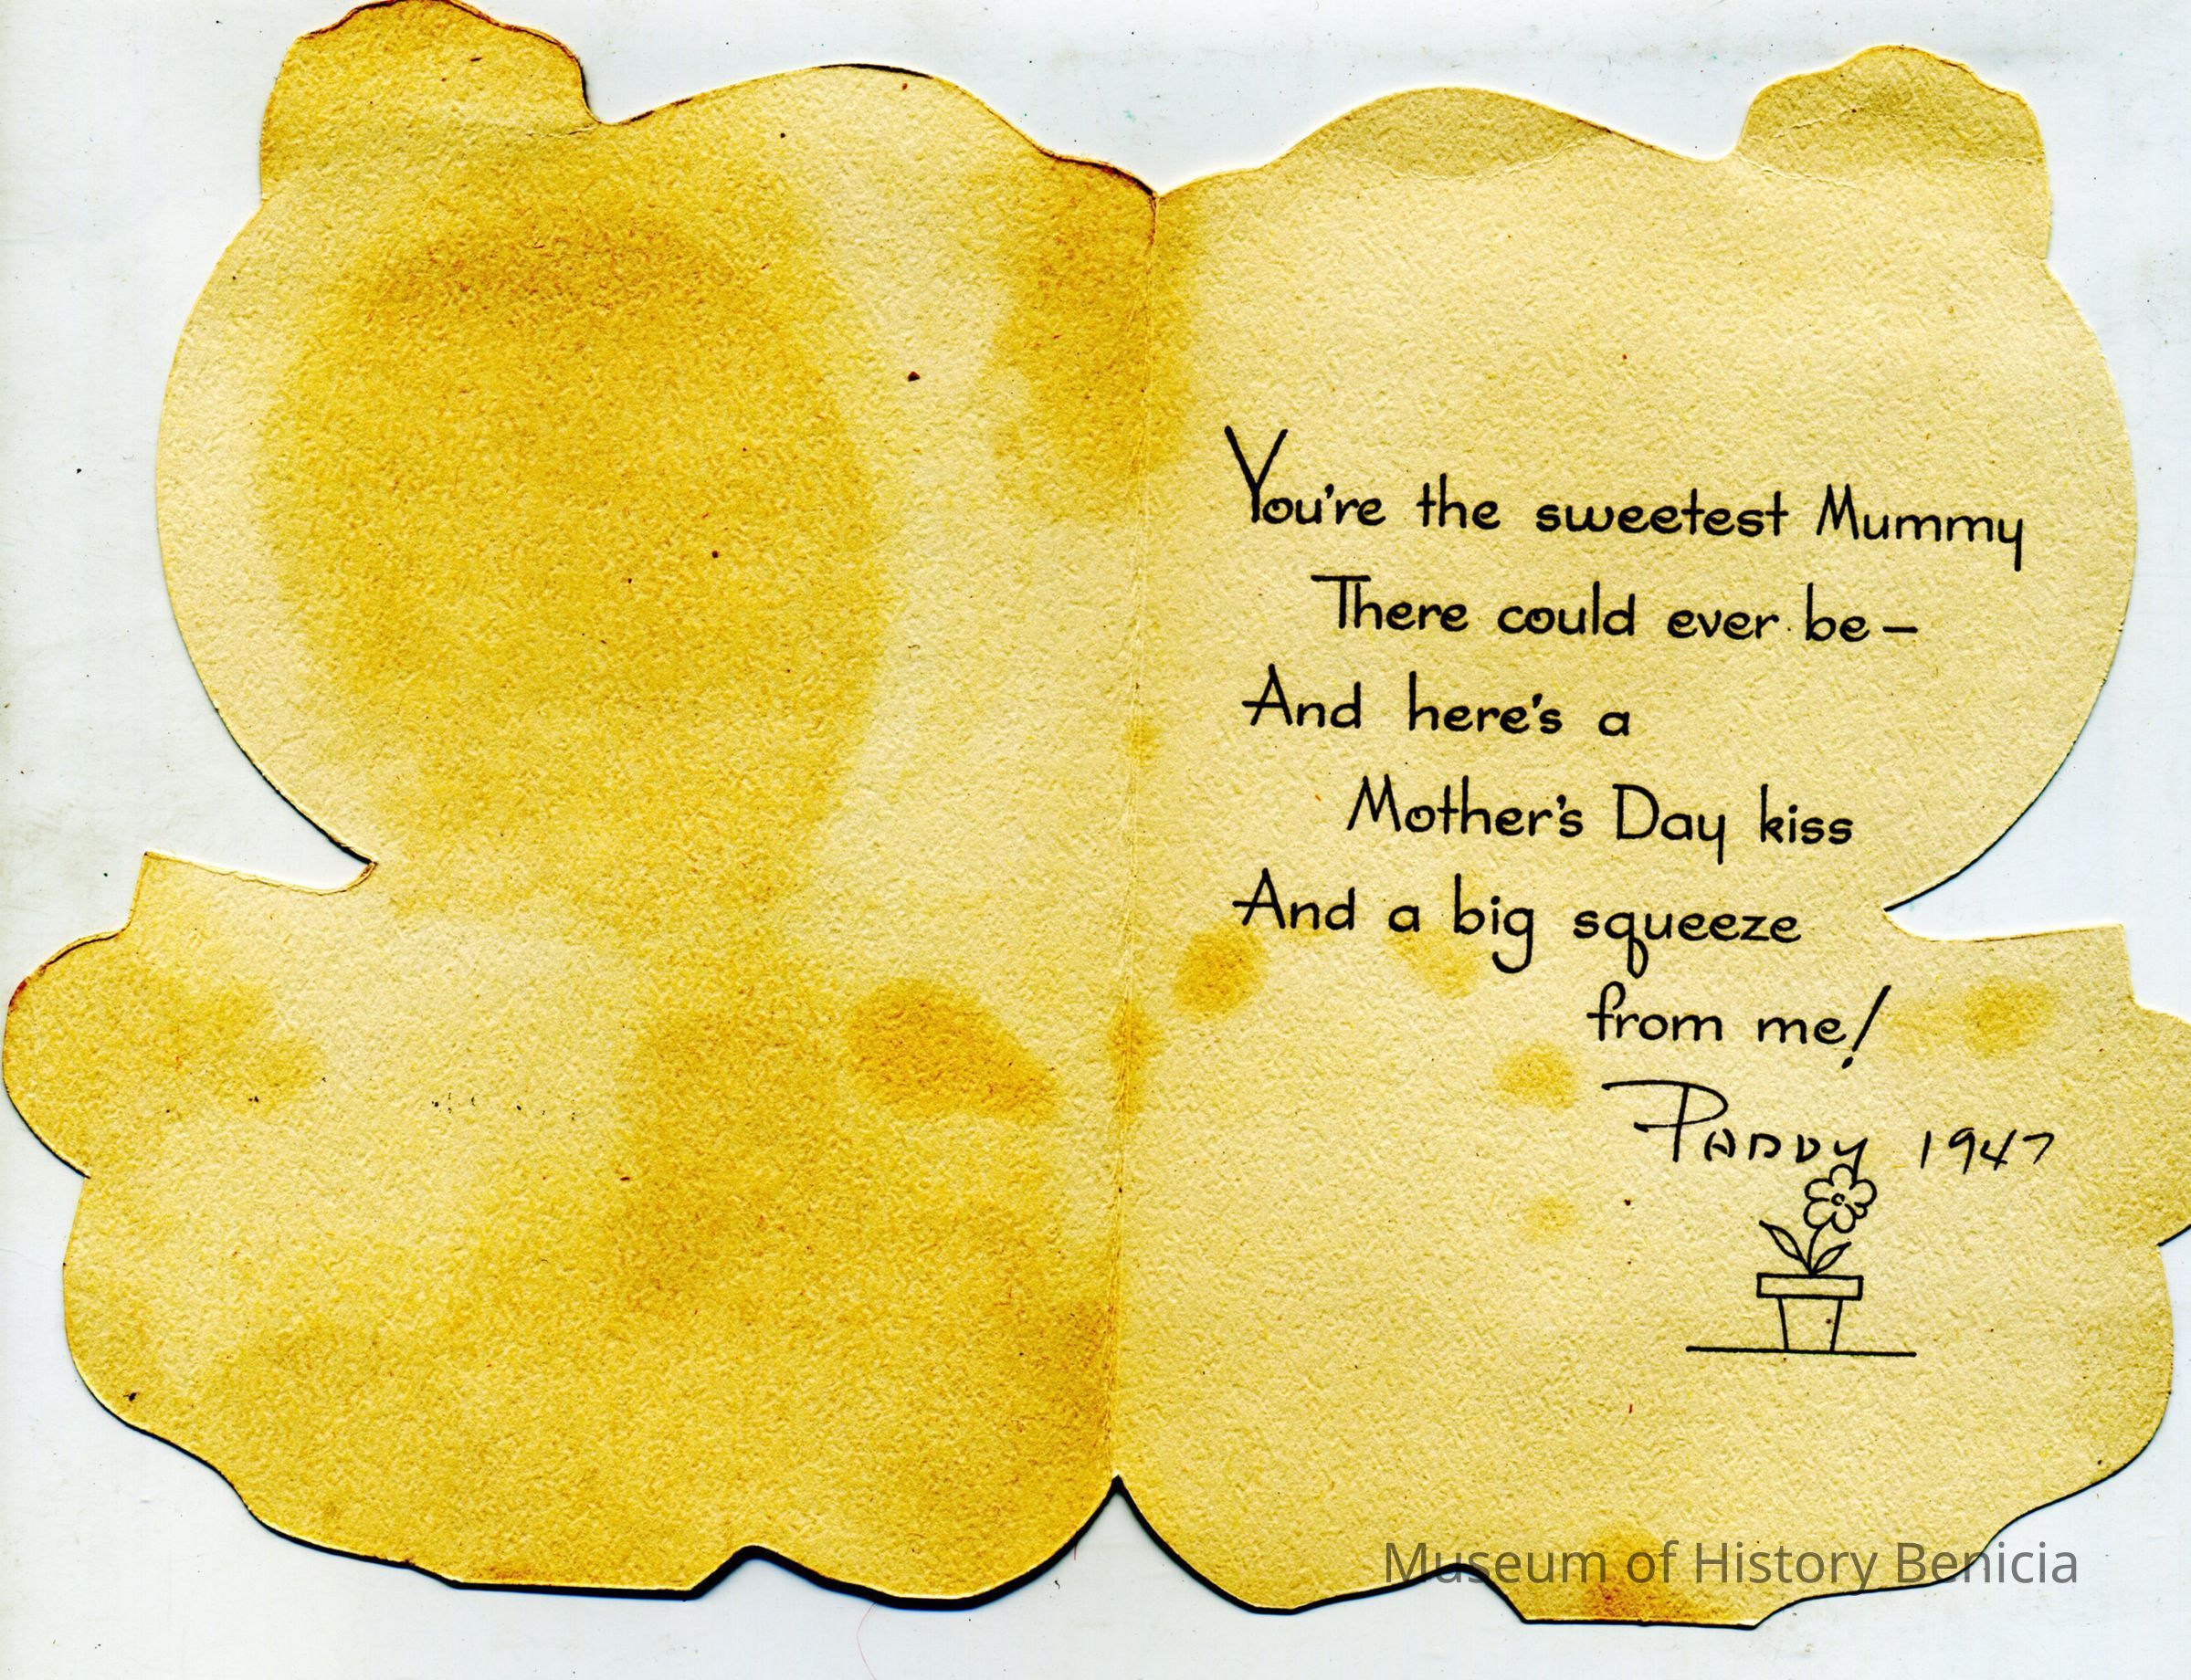 You're the sweetest Mummy
There could ever be –
And here's a
Mother's Day kiss
And a big squeeze
from me!
PADDY 1947
Museum of History Benicia